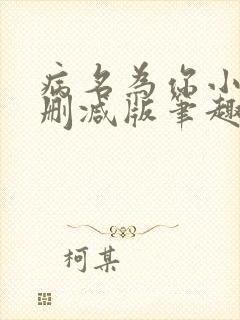 病名为你小
删减版笔趣
柯某